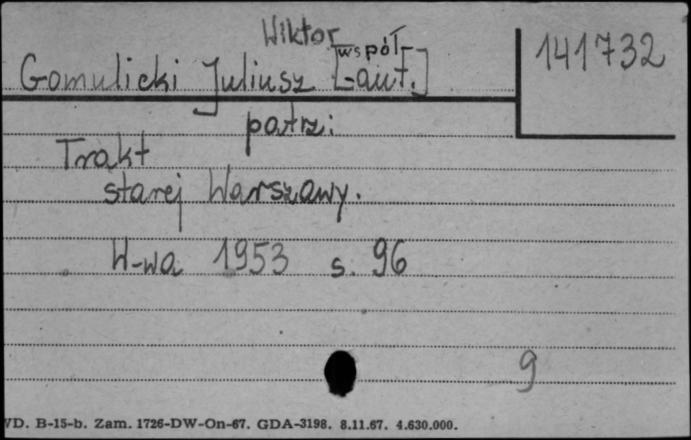 Wiktor
Gomulicki Juliusz [współ-aut.]
141732
patrz:
Trakt
starej Warszawy.
W-wa 1953 s. 96
9
VD. B-15-b. Zam. 1726-DW-On-67. GDA-3198. 8.11.67. 4.630.000.